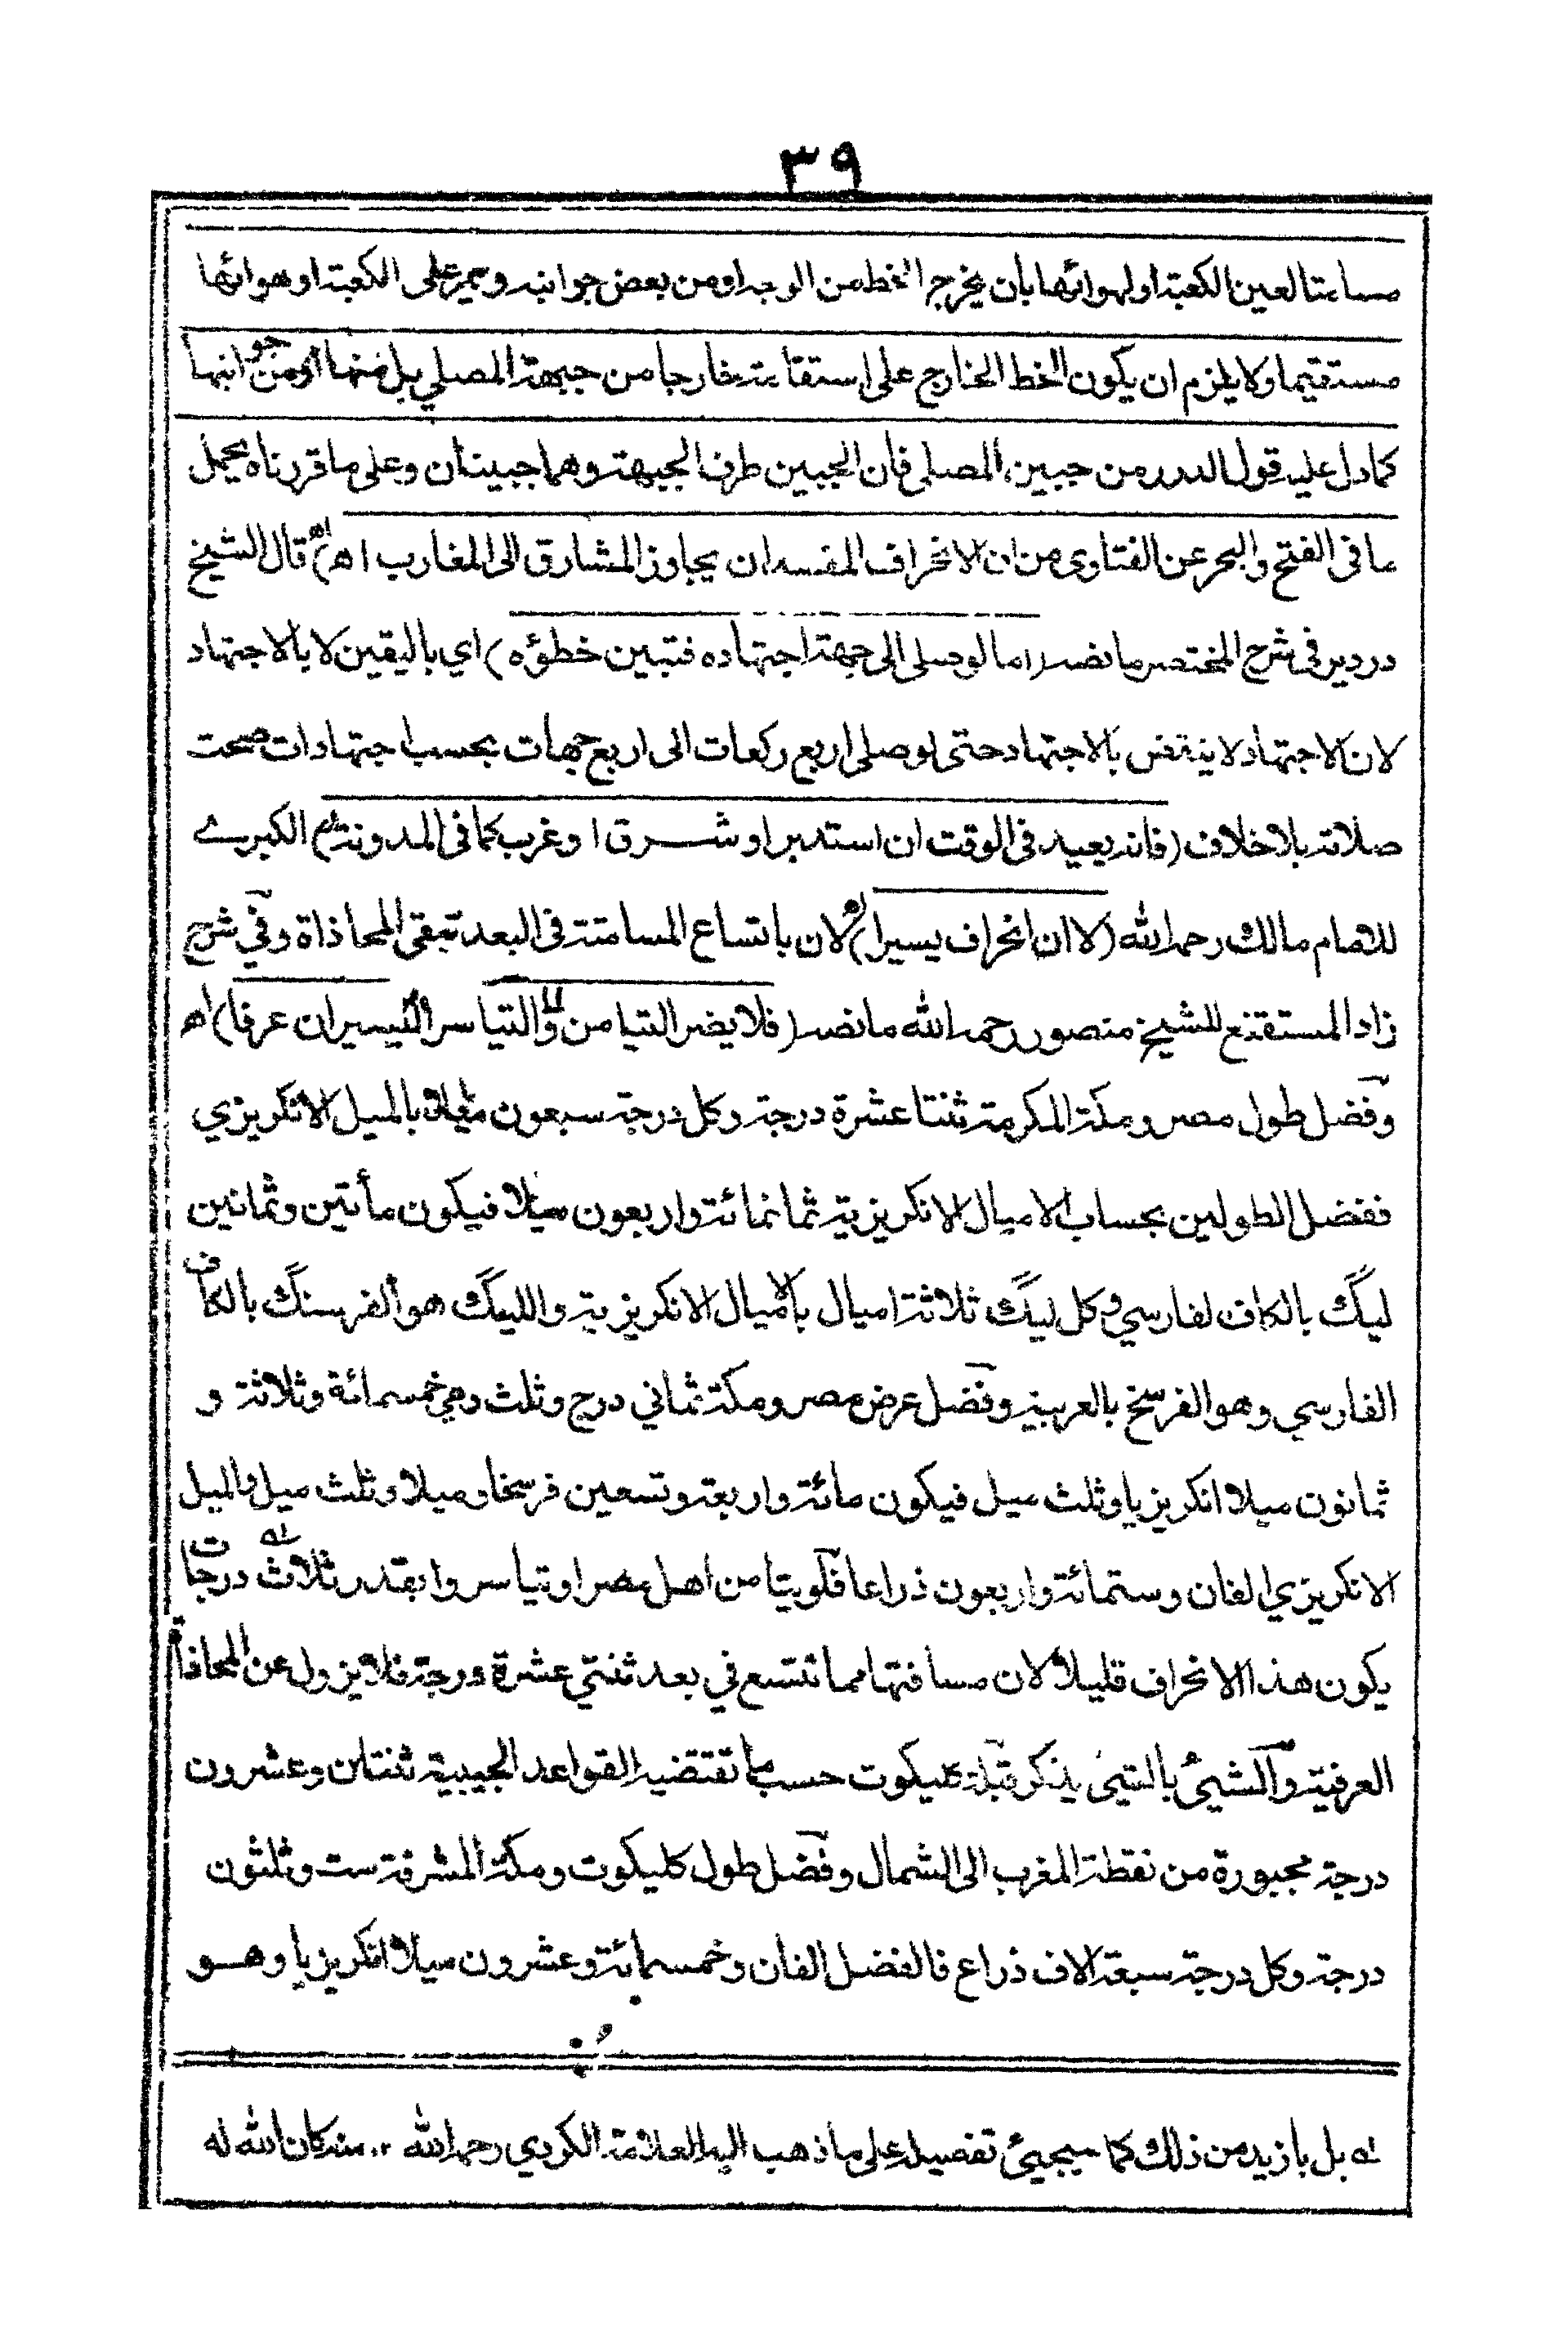 ٣٩
مسامتا لعين الكعبة او لهوائها بأن يخرج الخط من الوجه او من بعض جوانبه ويمر على الكعبة او هوائها
مستقيما ولا يلزم ان يكون الخط الخارج على استقامته خارجا من جبهة المصلي بل منها او من جوانبها
كما دل عليه قول الدرر من جبين المصلي فان الجبين طرف الجبهة وهما جبينان وعلى ما قررناه يحمل
ما في الفتح والبحر عن الفتاوى من ان الانحراف المفسد ان يجاوز المشارق الى المغارب اه) قال الشيخ
دردير في شرح المختصر ما نصه (اما لو صلى الى جهة اجتهاده فتبين خطؤه) اي باليقين لا بالاجتهاد
لان الاجتهاد لا ينتقض بالاجتهاد حتى لو صلى اربع ركعات الى اربع جهات بحسب اجتهادات صحت
صلاته بلا خلاف (فانه يعيد في الوقت ان استدبر او شرق او غرب كما في المدونة) الكبرے
للامام مالك رحمه الله (لا ان انحراف يسيرا) لان باتساع المسامتة في البعد تبقى المحاذاة وفي شرح
زاد المستقنع للشيخ منصور رحمه الله ما نصه (فلا يضر التيامن والتياسر اليسيران عرفا) اه
وفضل طول مصر ومكة المكرمة ثنتا عشرة درجة وكل درجة سبعون ميلا بالميل الانكريزي
ففضل الطولين بحساب الاميال الانكريزية ثمانمائة واربعون ميلا فيكون مأتين وثمانين
ليگ بالكاف لفارسي وكل ليگ ثلاثة اميال بالاميال الانكريزية والليگ هو الفرسنگ بالكاف
الفارسي وهو الفرسخ بالعربية وفضل عرض مصر ومكة ثماني درج وثلث وهي خمسمائة وثلاثة و
ثمانون ميلا انكريزيا وثلث ميل فيكون مائة واربعة وتسعين فرسخا وميلا وثلث ميل والميل
الانكريزي الفان وستمائة واربعون ذراعا فلو تيامن اهل مصر او تياسروا بقدر ثلاث درجات له
يكون هذا الانحراف قليلا لان مسافتها مما تتسع في بعد ثنتي عشرة درجة فلا يزول عن المحاذاة
العرفية والشيئ بالشيئ يذكر قبلة كليكوت حسب ما تقتضيه القواعد الجيبية ثنتان وعشرون
درجة مجبورة من نقطة المغرب الى الشمال وفضل طول كليكوت ومكة المشرفة ست وثلثون
درجة وكل درجة سبعة الاف ذراع فالفضل الفان وخمسمائة وعشرون ميلا انكريزيا وهو
له بل بازيد من ذلك كما سيجيئ تفصيله على ما ذهب اليه العلامة الكردي رحمه الله ١٢ منه كان الله له